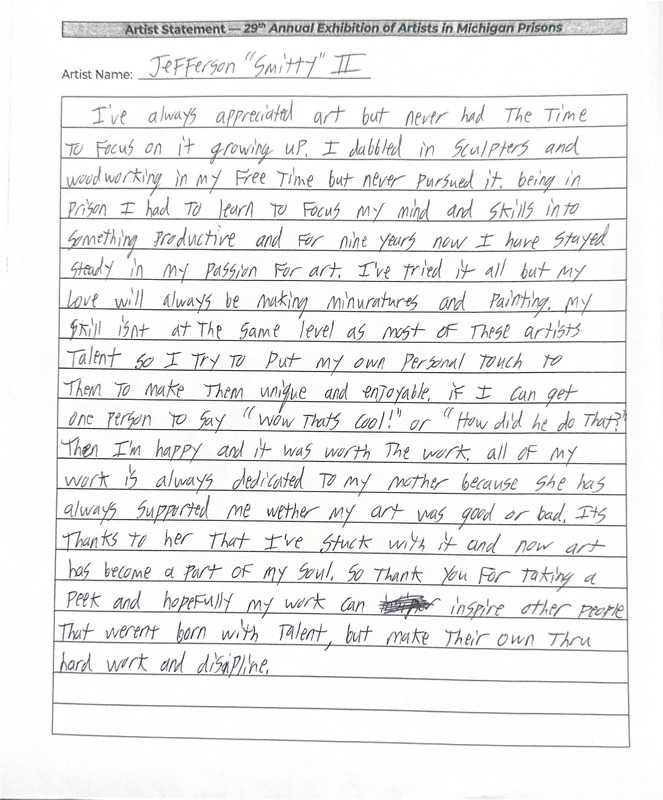 Artist Statement — 29th Annual Exhibition of Artists in Michigan Prisons
Artist Name: Jefferson "Smitty" II
I've always appreciated art but never had The Time
To Focus on it growing up. I dabbled in sculpters and
woodworking in my Free Time but never pursued it. being in
prison I had To learn To Focus my mind and skills into
something productive and For nine years now I have stayed
steady in my passion For art. I've tried it all but my
love will always be making minuratures and painting. my
skill isnt at The same level as most of These artists
Talent so I Try To put my own personal Touch to
Them To make Them unique and enjoyable. if I can get
one person To say "Wow Thats cool!" or "How did he do That?"
Then I'm happy and it was worth The work. all of my
work is always dedicated To my mother because she has
always supported me wether my art was good or bad. Its
Thanks to her That I've stuck with it and now art
has become a part of my soul. So Thank you For Taking a
peek and hopefully my work can inspire other people
That werent born with Talent, but make Their own Thru
hard work and disipline.